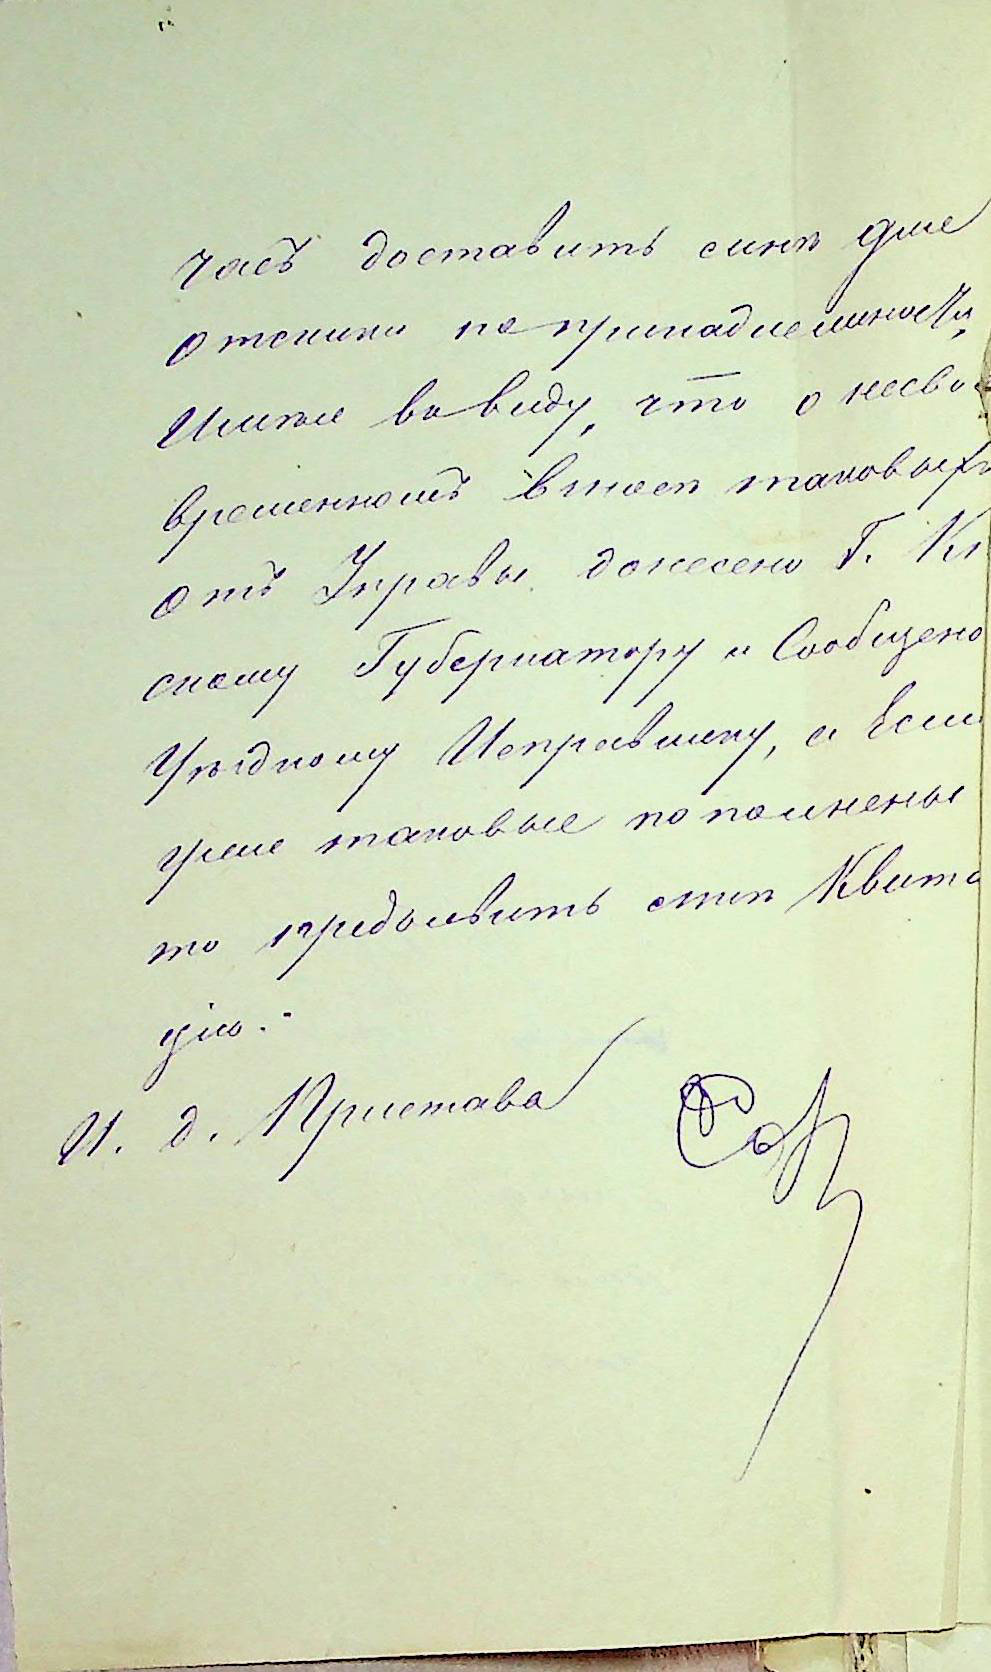 часъ доставить
отсылки по принадлежности,
Имѣя въ виду, что о несво
временномъ взносѣ таковыхъ
отъ Управы донесено Г.
скому Губернатору и Сообщено
Уѣздному Исправнику, а Если
уже таковые пополнены
то предъявить мнѣ Квита
цію.
И. д. Пристава